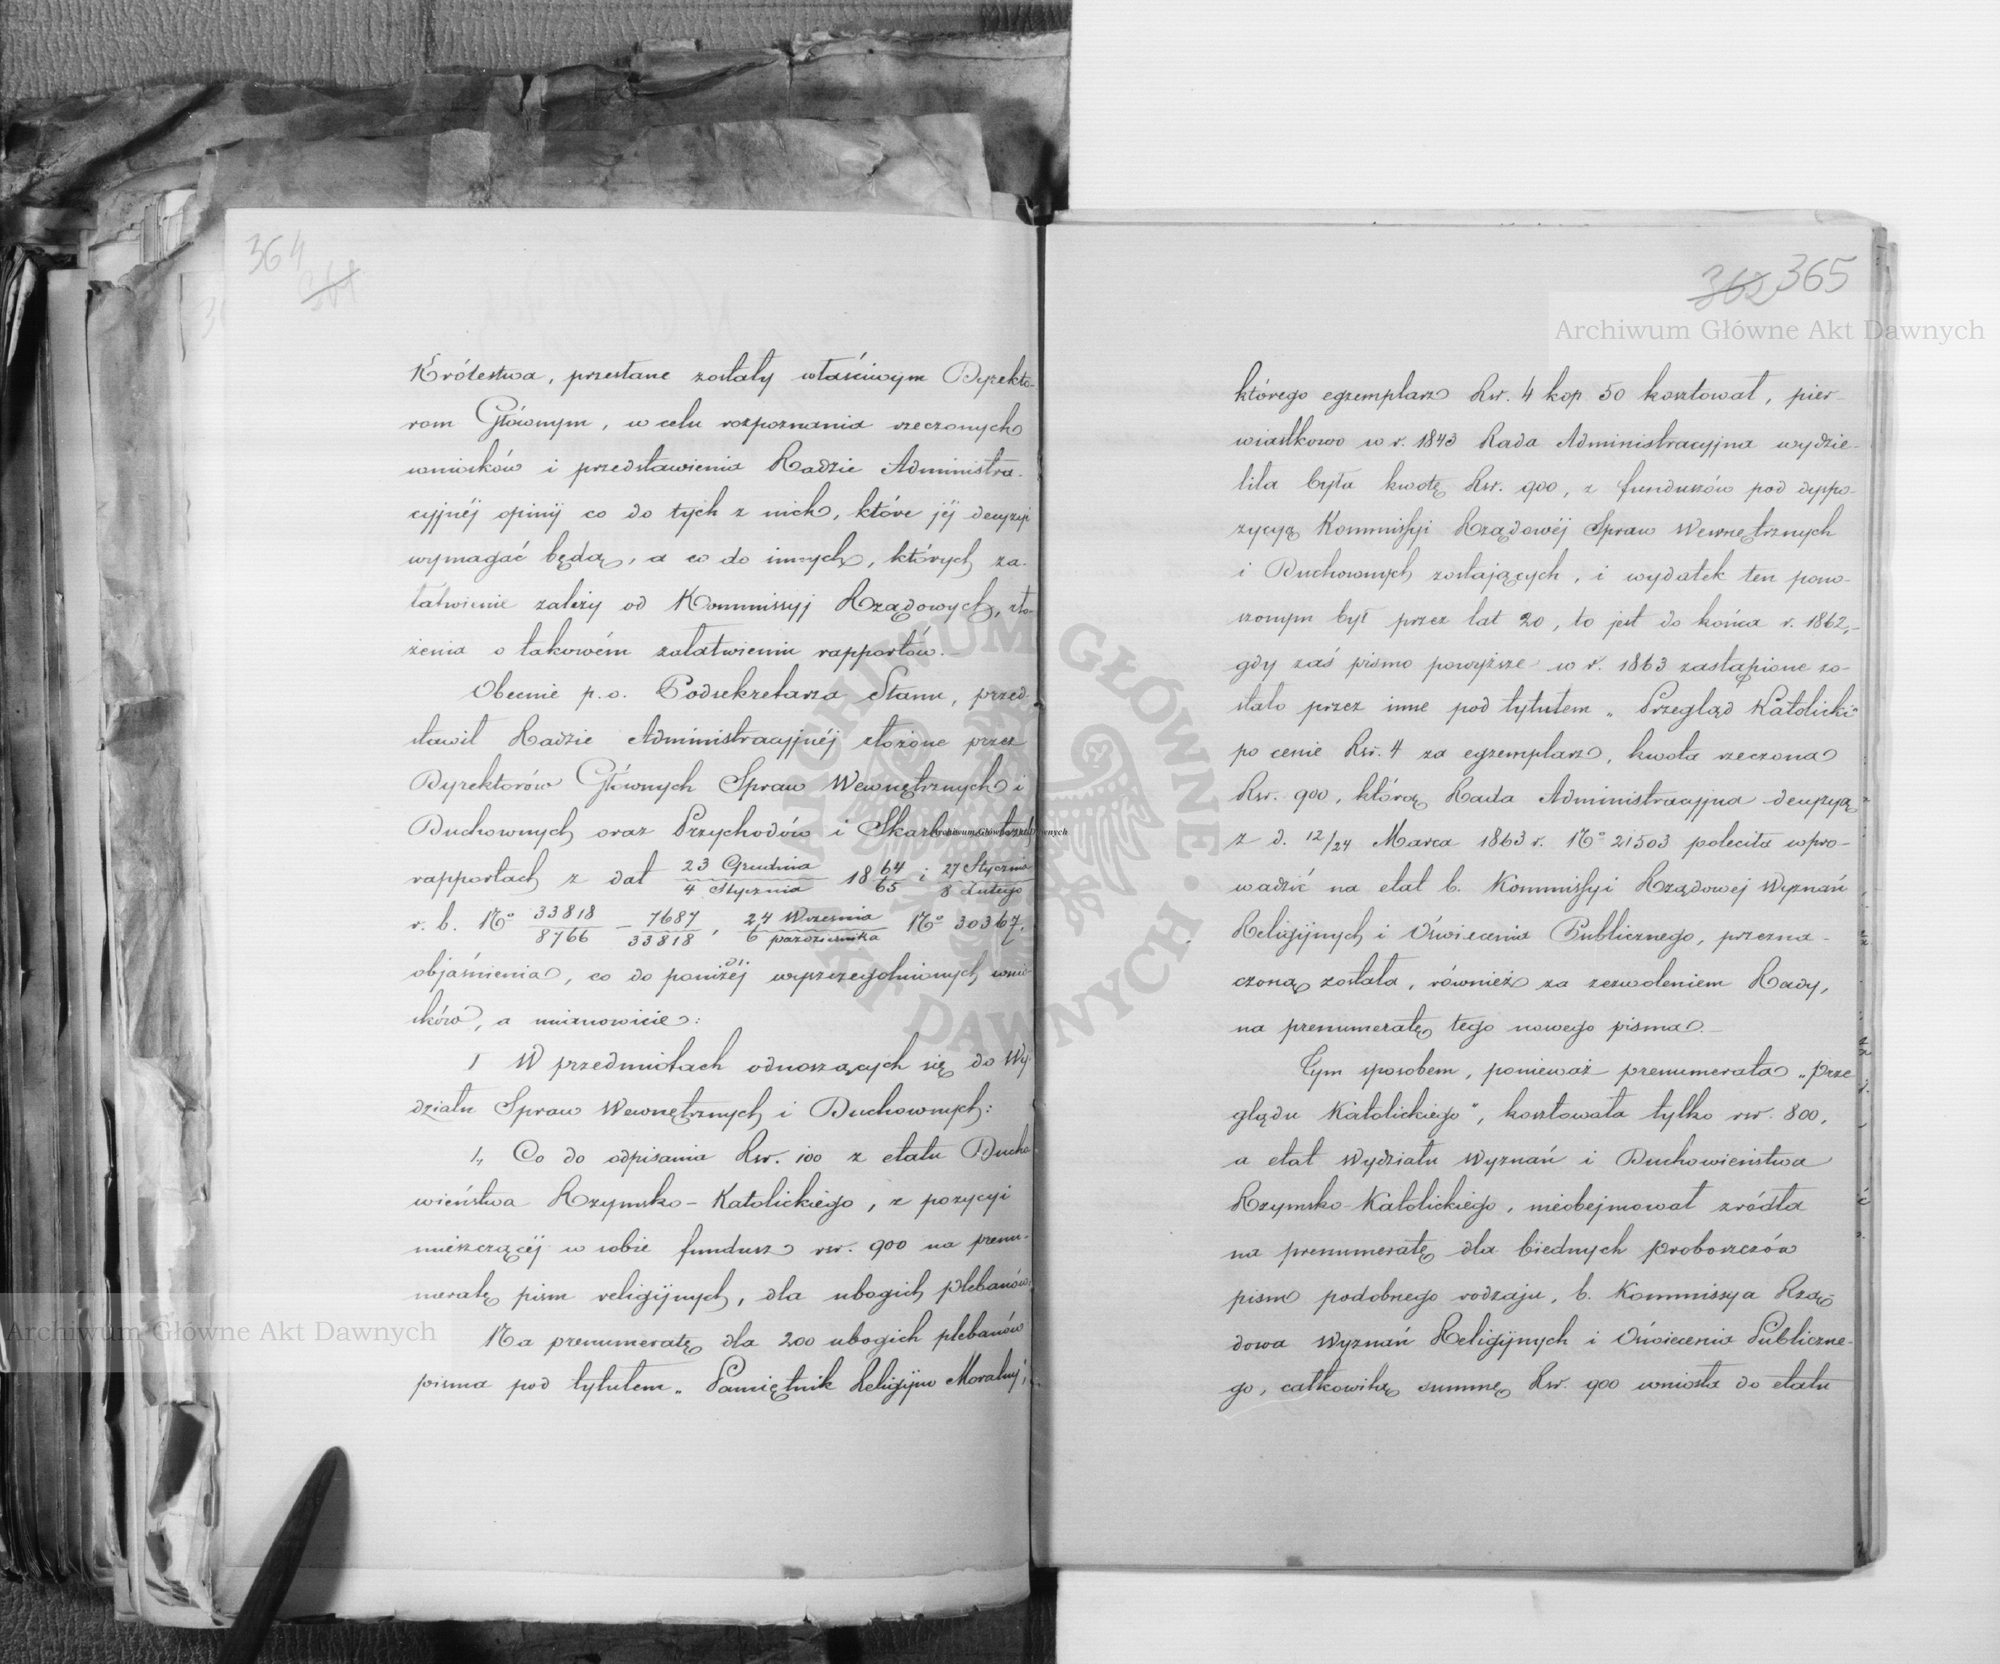 364
361
Królestwa, przesłane zostały właściwym Dyrekto-
rom Głównym, w celu rozpoznania rzeczonych
wniosków i przedstawienia Radzie Administra-
cyjnéj opinij co do tych z nich, które jéj decyzyi
wymagać będą, a co do innych, których za-
łatwienie zależy od Kommissyj Rządowych, zło-
żenia o takowém załatwieniu rapportów.-
Obecnie p.o. Podsekretarza Stanu, przed-
stawił Radzie Administracyjnéj złożone przez
Dyrektorów Głównych Spraw Wewnętrznych i
Duchownych oraz Przychodów i Skarbu
rapportach z dat 23 Grudnia / 4 Stycznia 1864/65 i 27 Stycznia / 8 Lutego
r. b. No 33818/8766 – 7687/33818, 24 Września / 6 października No 30367,
objaśnienia, co do poniżéj wyszczególnionych wnio-
sków, a mianowicie:
I W przedmiotach odnoszących się do Wy-
działu Spraw Wewnętrznych i Duchownych:
1, Co do odpisania Rsr. 100 z etatu Ducho-
wieństwa Rzymsko-Katolickiego, z pozycyi
mieszczącéj w sobie fundusz rsr. 900 na prenu-
meratę pism religijnych, dla ubogich plebanów.
Na prenumeratę dla 200 ubogich plebanów
pisma pod tytułem „Pamiętnik Religijno Moralny",
362 365
którego egzemplarz Rsr. 4 kop 50 kosztował, pier-
wiastkowo w r. 1843 Rada Administracyjna wydzie-
liła była kwotę Rsr. 900, z funduszów pod dyspo-
zycyą Kommissyi Rządowéj Spraw Wewnętrznych
i Duchownych zostających, i wydatek ten pono-
szonym był przez lat 20, to jest do końca r. 1862,-
gdy zaś pismo powyższe w r. 1863 zastąpione zo-
stało przez inne pod tytułem „Przegląd Katolicki"
po cenie Rsr. 4 za egzemplarz, kwota rzeczona
Rsr. 900, którą Rada Administracyjna decyzyą
z d. 12/24 Marca 1863 r. No 21503 poleciła wpro-
wadzić na etat b. Kommissyi Rządowej Wyznań
Religijnych i Oświecenia Publicznego, przezna-
czoną została, również za zezwoleniem Rady,
na prenumeratę tego nowego pisma.-
Tym sposobem, ponieważ prenumerata „Prze-
glądu Katolickiego", kosztowała tylko rsr. 800,
a etat Wydziału Wyznań i Duchowieństwa
Rzymsko-Katolickiego, nieobejmował źródła
na prenumeratę dla biednych proboszczów
pism podobnego rodzaju, b. Kommissya Rzą-
dowa Wyznań Religijnych i Oświecenia Publiczne-
go, całkowitą summę Rsr. 900 wniosła do etatu
Archiwum Główne Akt Dawnych
Archiwum Główne Akt Dawnych
Archiwum Główne Akt Dawnych
ARCHIWUM GŁÓWNE AKT DAWNYCH